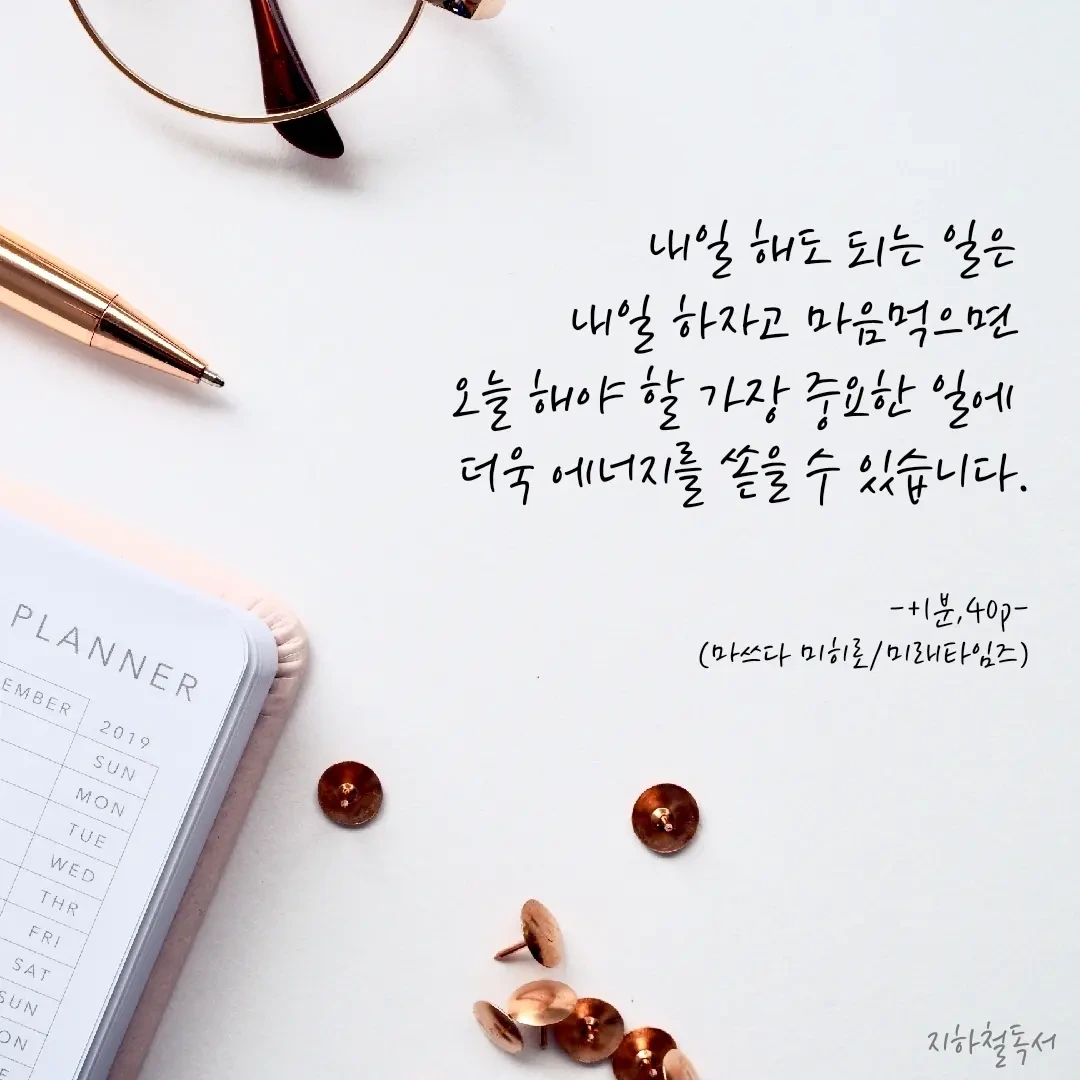 내일 해도 되는 일은
내일 하자고 마음먹으면
오늘 해야 할 가장 중요한 일에
더욱 에너지를 쏟을 수 있습니다.
-+1분,40p-
(마쓰다 미히로/미래타임즈)
PLANNER
EMBER
2019
SUN
MON
TUE
WED
THR
FRI
SAT
SUN
ON
지하철독서